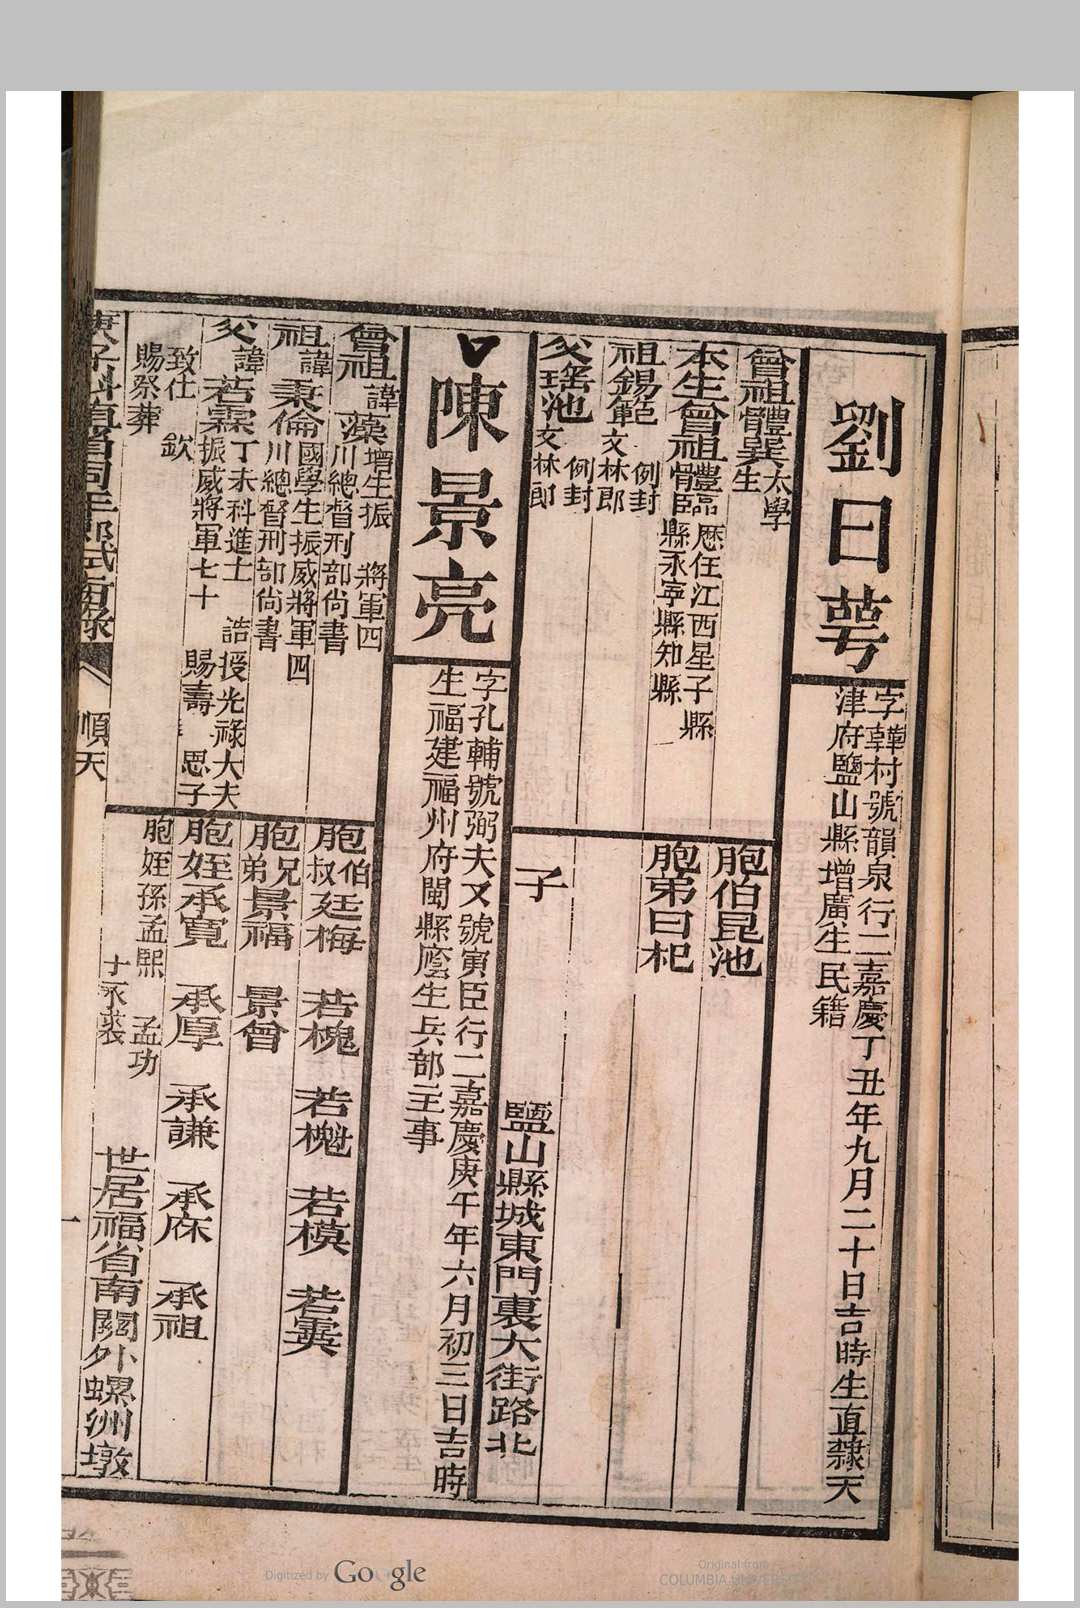 劉曰萼
字韡村號韻泉行二嘉慶丁丑年九月二十日吉時生直隸天
津府鹽山縣增廣生民籍
曾祖體巽太學
生
本生曾祖體臨歷任江西星子縣
縣永寧縣知縣
祖錫範例封
文林郎
父瑤池例封
文林郎
胞伯昆池
胞弟曰杞
子
鹽山縣城東門裏大街路北
陳景亮
字孔輔號弼夫又號寅臣行二嘉慶庚午年六月初三日吉時
生福建福州府閩縣廕生兵部主事
曾祖諱藻增生振 將軍四
川總督刑部尚書
祖諱秉倫國學生振威將軍四
川總督刑部尚書
父諱若霖丁未科進士 誥授光祿大夫
振威將軍七十 賜壽 恩予
致仕 欽
賜祭葬
胞伯叔廷梅 若槐 若槐 若模 若霙
胞兄弟景福 景曾
胞姪承寬 承厚 承謙 承庥 承祖
胞姪孫孟熙 孟功
子承裘
世居福省南關外螺洲墩
庚子科直省同年鄉試齒錄
順天
一
Digitized by Google
Original from
COLUMBIA UNIVERSITY